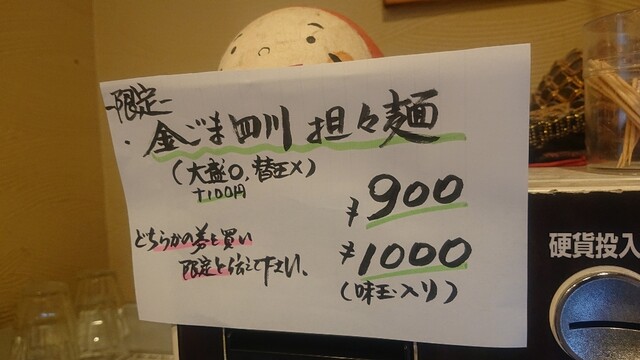 -限定-
・金ごま四川担々麺
(大盛○、替玉×)
+100円
¥900
どちらかの券を買い
¥1000
限定と伝えて下さい、
(味玉入り)
硬貨投入